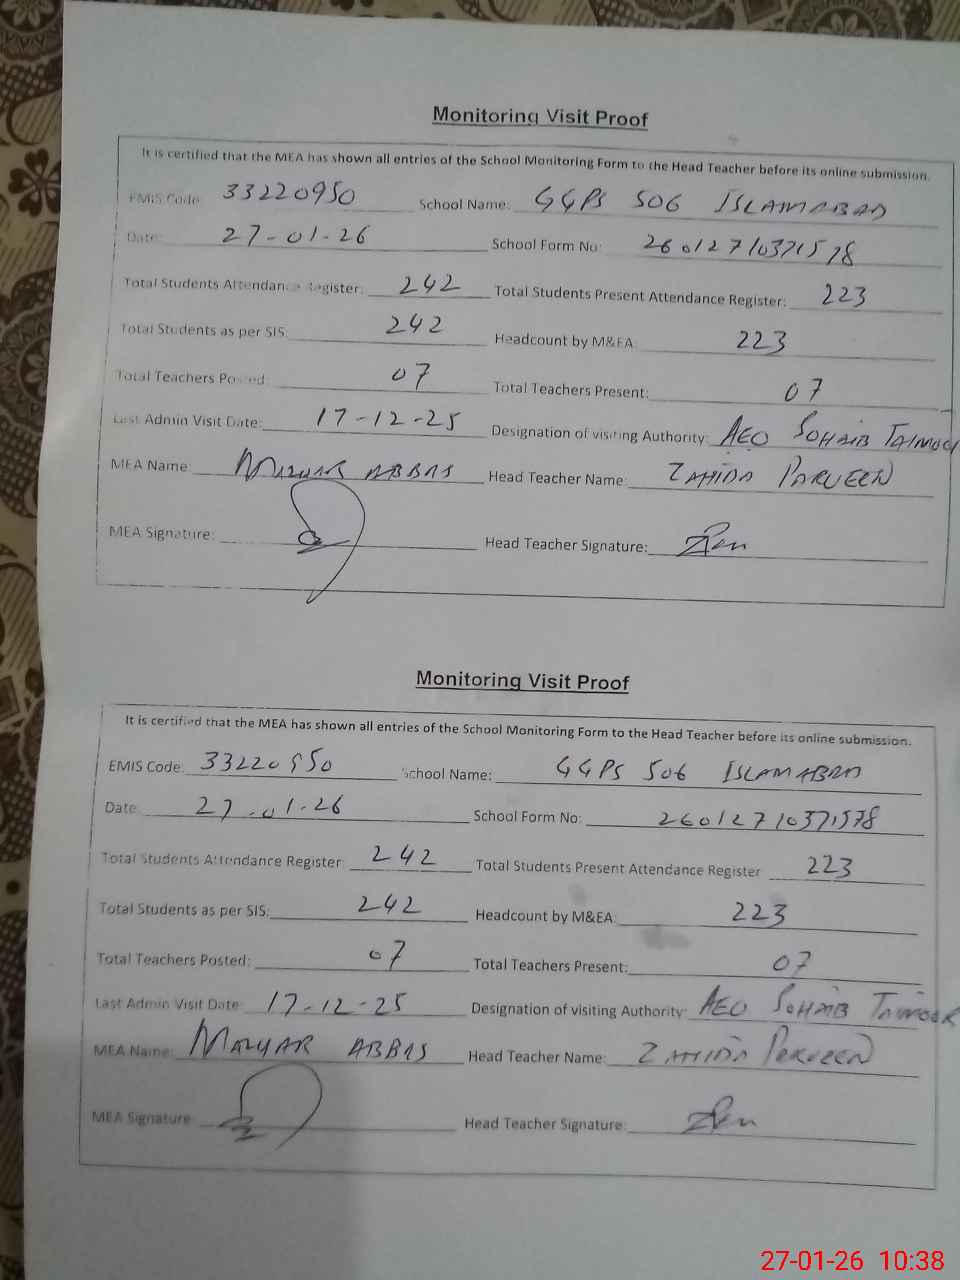 Monitoring Visit Proof
It is certified that the MEA has shown all entries of the School Monitoring Form to the Head Teacher before its online submission.
EMIS Code: 33220950 School Name: GGPS 506 ISLAMABAD
Date: 27-01-26 School Form No: 26012710371578
Total Students Attendance Register: 242 Total Students Present Attendance Register: 223
Total Students as per SIS: 242 Headcount by M&EA: 223
Total Teachers Posted: 07 Total Teachers Present: 07
Last Admin Visit Date: 17-12-25 Designation of visiting Authority: AEO SOHAIB TAIMOOR
MEA Name ABBAS Head Teacher Name: ZAHIDA PARVEEN
MEA Signature: Head Teacher Signature:
Monitoring Visit Proof
It is certified that the MEA has shown all entries of the School Monitoring Form to the Head Teacher before its online submission.
EMIS Code: 33220950 School Name: GGPS 506 ISLAMABAD
Date: 27-01-26 School Form No: 26012710371578
Total Students Attendance Register: 242 Total Students Present Attendance Register 223
Total Students as per SIS: 242 Headcount by M&EA: 223
Total Teachers Posted: 07 Total Teachers Present: 07
Last Admin Visit Date: 17-12-25 Designation of visiting Authority: AEO SOHAIB TAIMOOR
MEA Name: ABBAS Head Teacher Name: ZAHIDA PERVEEN
MEA Signature: Head Teacher Signature:
27-01-26 10:38